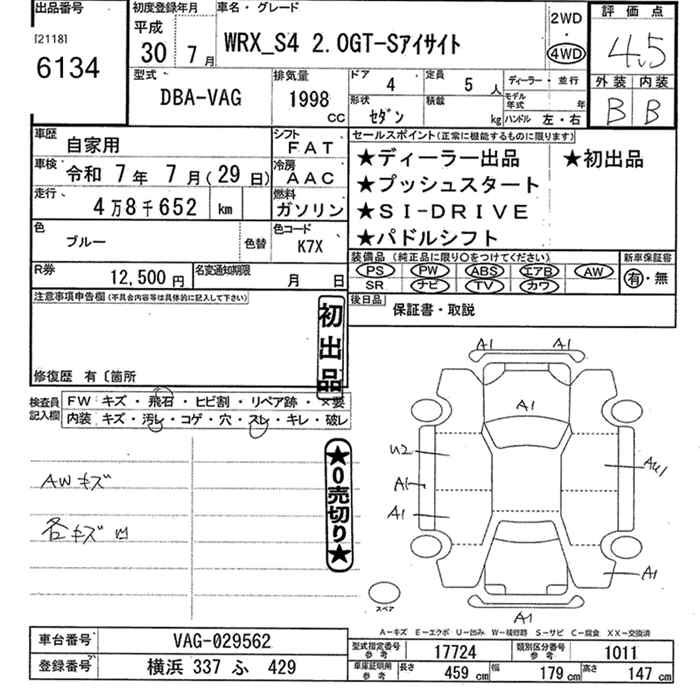 出品番号
[2118]
6134
初度登録年月
平成
30年7月
車名・グレード
WRX_S4 2.0GT-Sアイサイト
2WD
・
4WD
評価点
4.5
外装 内装
B B
型式
DBA-VAG
排気量
1998
CC
ドア
4
定員
5人
ディーラー・並行
形状
セダン
積載
kg
モデル年式
年
ハンドル 左・右
車歴
自家用
シフト
FAT
車検
令和 7年 7月(29日)
冷房
AAC
走行
4万8千652 km
燃料
ガソリン
色
ブルー
色替
色コード
K7X
R券
12,500円
名変通知期限
月 日
セールスポイント(正常に機能するものに限ります)
★ディーラー出品 ★初出品
★プッシュスタート
★SI-DRIVE
★パドルシフト
装備品(純正品に限り○をつけてください)
新車保証書
PS PW ABS エアB AW
SR ナビ TV カワ
有・無
後日品
保証書・取説
注意事項申告欄(不具合内容等は具体的に記入して下さい)
初出品
修復歴 有〔箇所
検査員
記入欄
FW キズ・飛石・ヒビ割・リペア跡・×要
内装 キズ・汚レ・コゲ・穴・スレ・キレ・破レ
AWキズ
各キズ凹
★0売切り★
A1 A1
A1
U2
A1
A1
AU1
A1
A1
スペア
A-キズ E-エクボ U-凹み W-補修跡 S-サビ C-腐食 XX-交換済
車台番号
VAG-029562
登録番号
横浜 337 ふ 429
型式指定番号
参考
17724
類別区分番号
参考
1011
車庫証明用
参考
長さ
459cm
幅
179cm
高さ
147cm